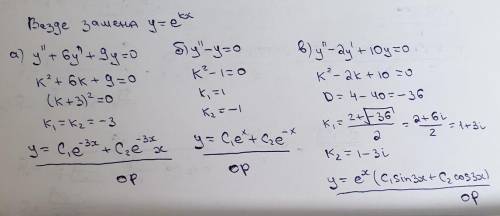 Везде замена y=e^{kx}
а) y''+6y'+9y=0
k²+6k+9=0
(k+3)²=0
k₁=k₂=-3
y=C₁e^{-3x}+C₂e^{-3x}x
ор
б) y''-y=0
k²-1=0
k₁=1
k₂=-1
y=C₁e^x+C₂e^{-x}
ор
в) y''-2y'+10y=0
k²-2k+10=0
D=4-40=-36
k₁=\frac{2+\sqrt{-36}}{2}=\frac{2+6i}{2}=1+3i
k₂=1-3i
y=e^x(C₁sin3x+C₂cos3x)
ор